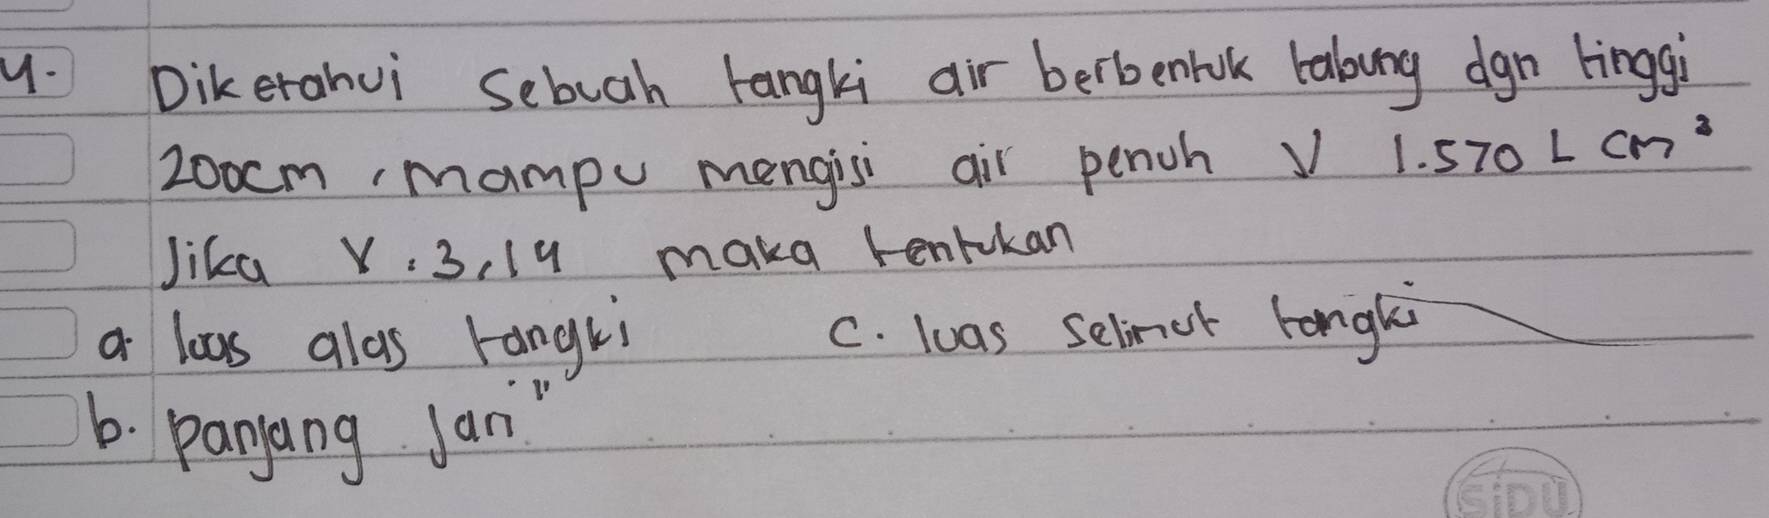 4. Diketahui sebuah tangki air berbentuk tabung dgn tinggi
200cm, mampu mengisi air penuh V 1.570 L cm³
Jika r : 3,14 maka tentukan
a. luas alas tangki c. luas selimut tangki
b. panjang jari"
SiDU